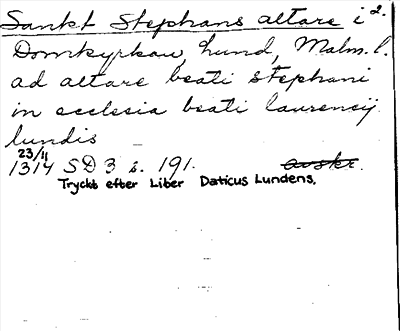 Sankt Stephans altare i 2.
Domkyrkan, Lund, Malm. l.
ad altare beati Stephani
in ecclesia beati laurencij
lundis
23/11
1314 SD 3 s. 191. avskr.
Tryckt efter Liber Daticus Lundens.